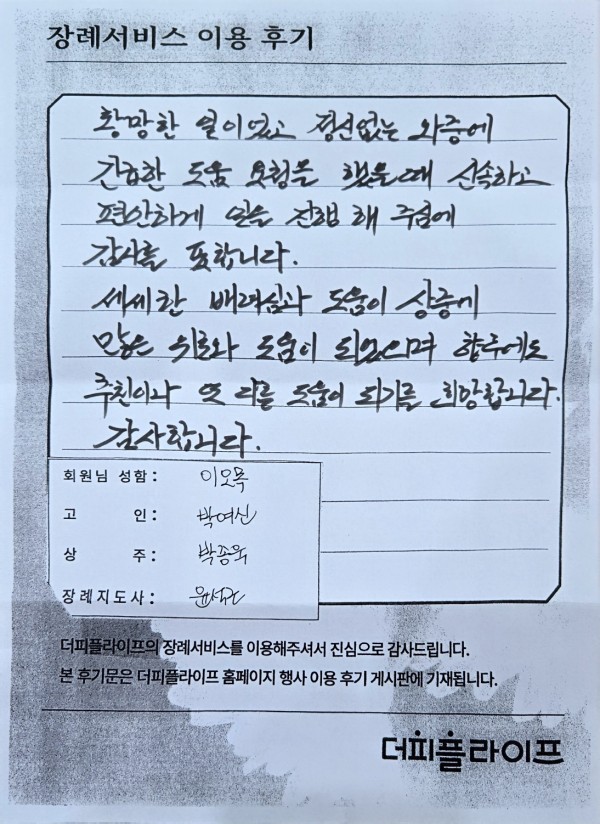 장례서비스 이용 후기
황망한 일이었고 경신없는 와중에
간급한 도움 요청을 했을때 신속하고
편안하게 일을 진행 해 주심에
감사를 표합니다.
세세한 배려심과 도움이 상중에
많은 위로와 도움이 되었으며 향후에도
추천이나 또 다른 도움이 되기를 희망합니다.
감사합니다.
회원님 성함: 이모목
고 인: 박여신
상 주: 박종욱
장례지도사:
더피플라이프의 장례서비스를 이용해주셔서 진심으로 감사드립니다.
본 후기문은 더피플라이프 홈페이지 행사 이용 후기 게시판에 기재됩니다.
더피플라이프